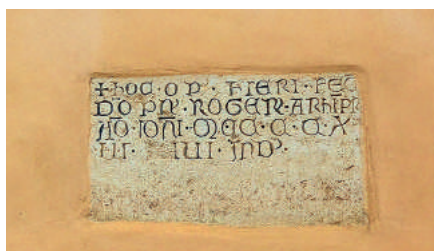 + hOC · OP' · FIERI · FEC
DO PN' · ROGER · ARhIPR
AÑO · IOÑI · MCC · C · C · X
III · IUI · IND'·